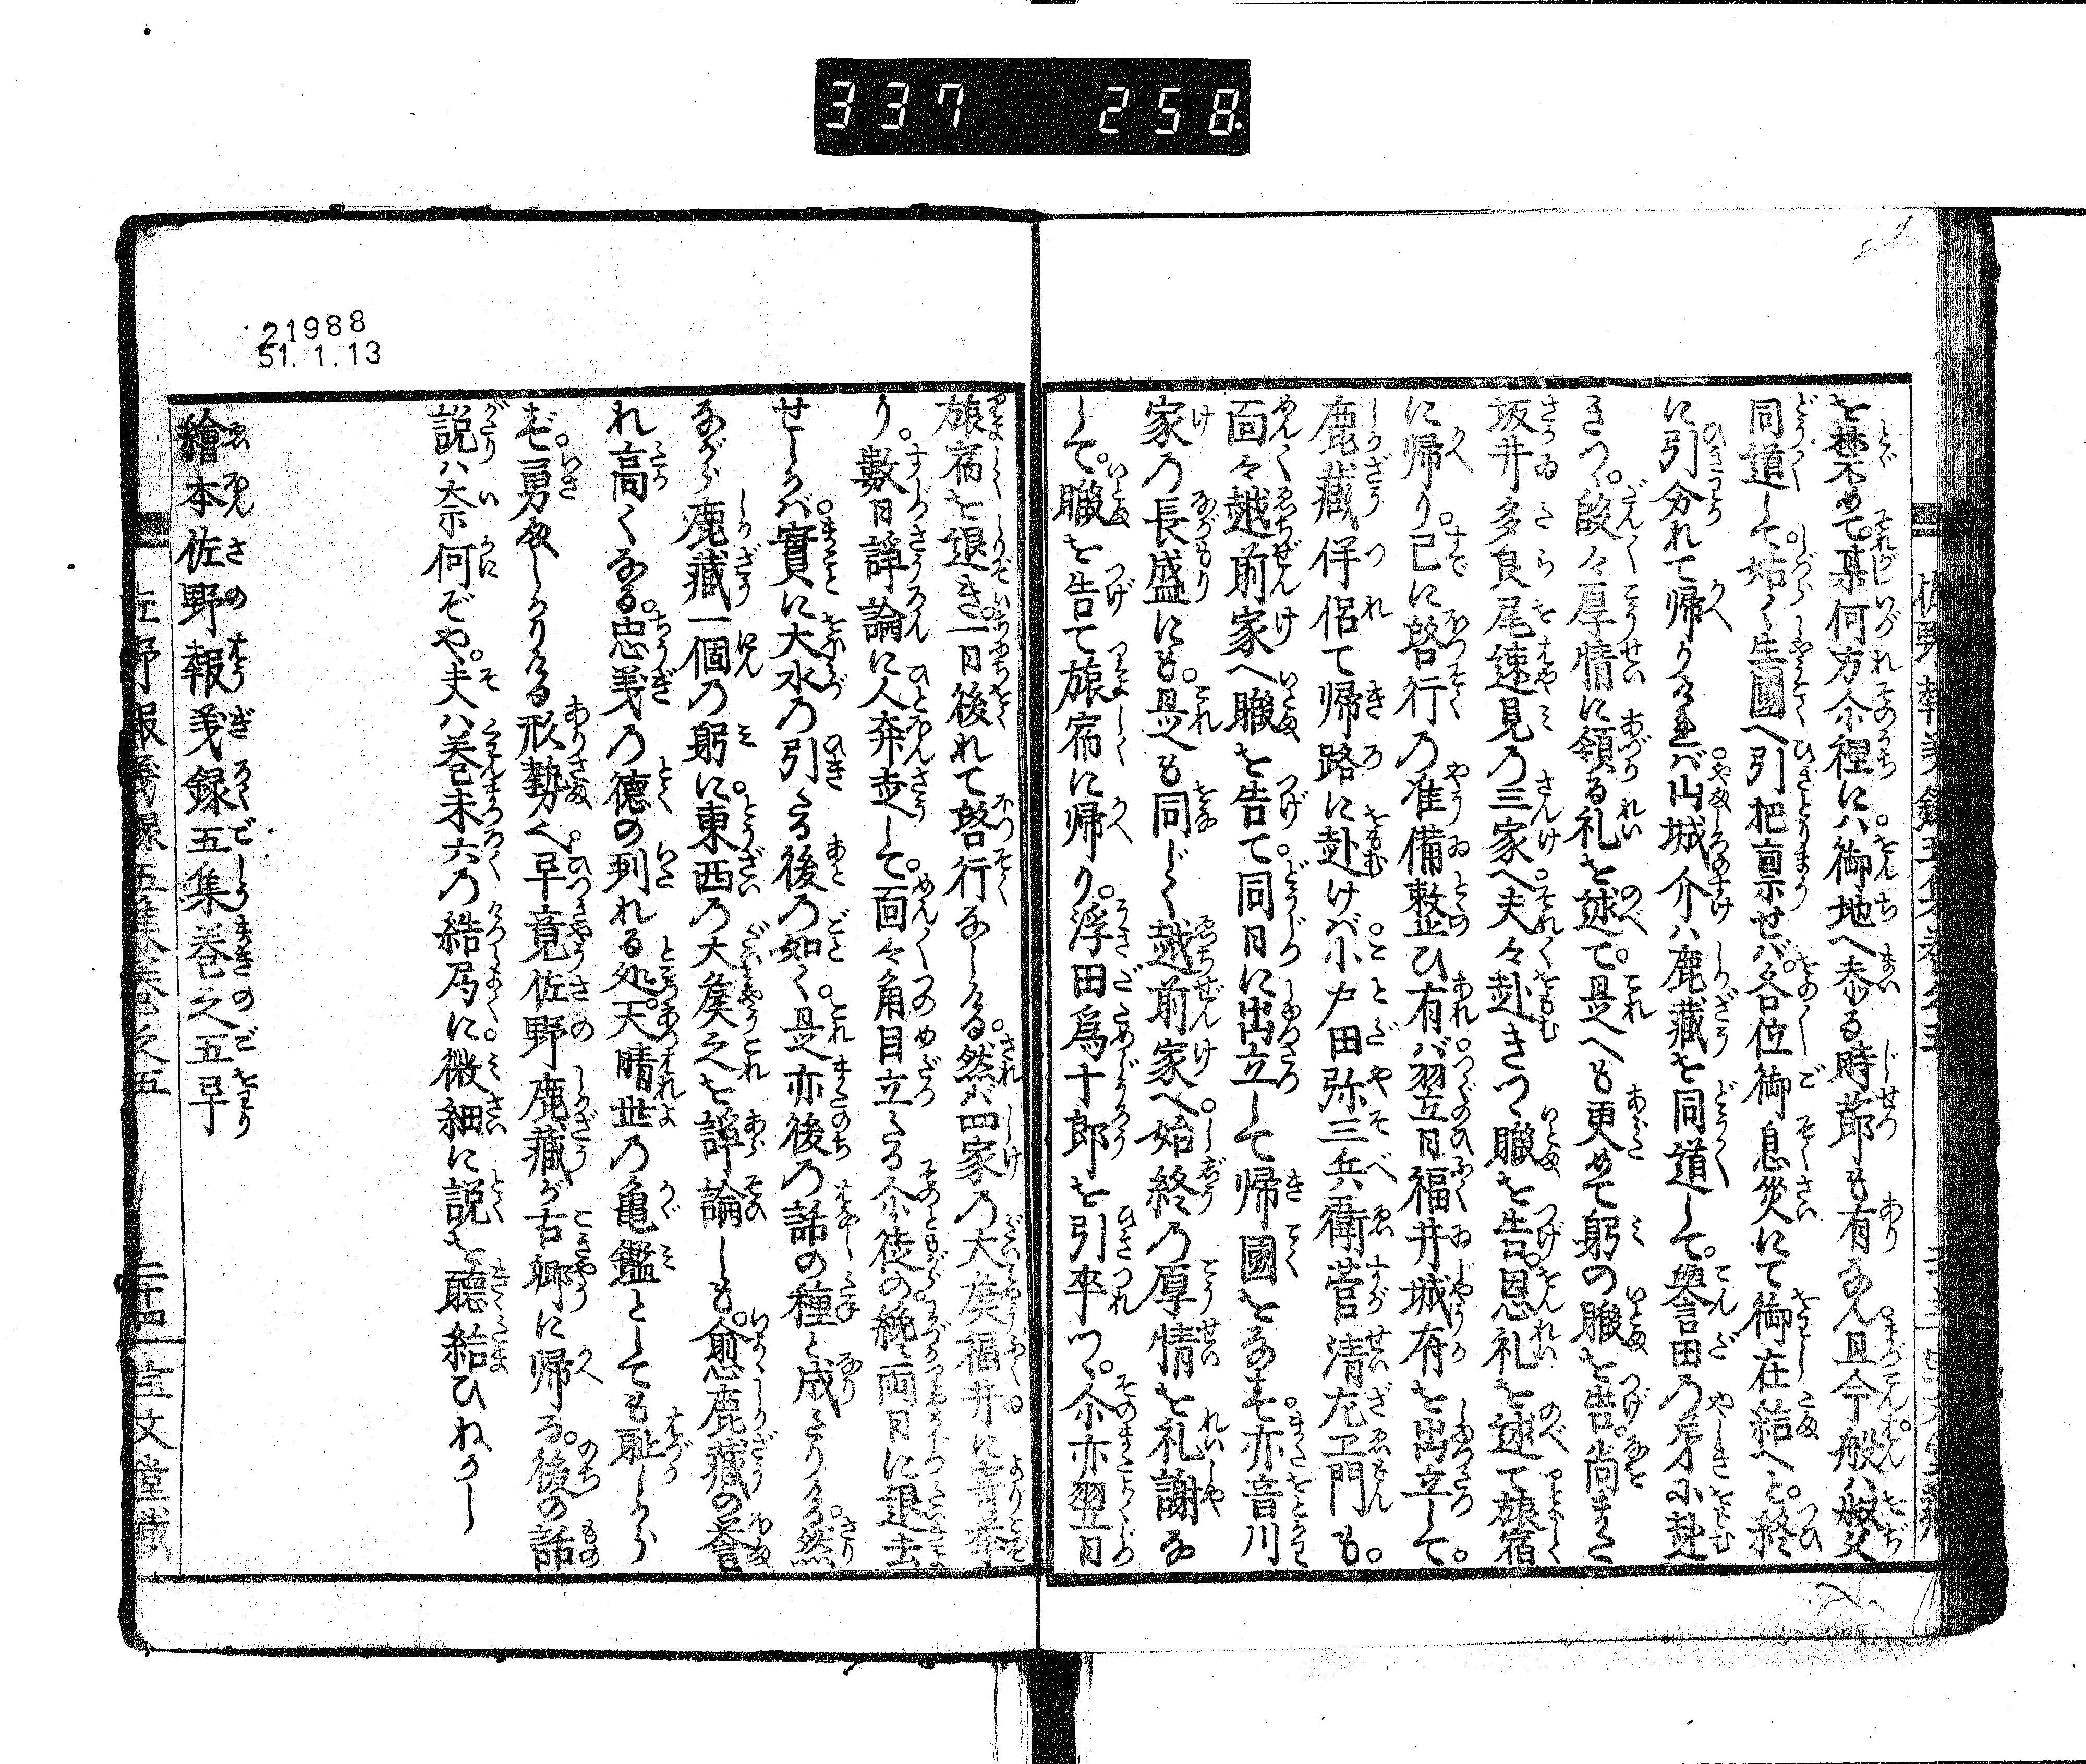 337 258
を禁めて。某何方尓裡にハ御地へ参る時節も有なん且今般ハ叔父
同道して姑く生國へ引把稟せバ。各位御息災にて御在給へと。終
に引分れて帰りけれバ。山城介ハ鹿蔵を同道して。譽田乃第に赴
きつ。段々厚情に領る礼を述て。是へも更めて躬の暇を告。尚また
坂井多良尾速見乃三家へ夫々赴きつ暇を告。恩礼を述て旅宿
に帰り。已に啓行乃准備整ひ有バ。翌日福井城府を出立して。
鹿蔵伴侶て帰路に赴けバ。小戸田弥三兵衛菅清左エ門も。
面々越前家へ暇を告て。同日に出立して帰國をなす。亦音川
家乃長盛にも。是も同じく越前家へ。始終乃厚情を礼謝な
して。暇を告て旅宿に帰り。浮田為十郎を引率つ。尓亦翌日
旅宿を退き。一日後れて啓行なしける。然バ四家乃大矦福井に寄挙
り。數日諍論に人奔走して。面々角目立たる尓徒の。纔両日に退去
せしかバ。實に大水乃引たる後乃如く。是亦後乃話の種と成たりける。然
ながら鹿蔵一個乃躬に。東西乃大矦之を諍論しも。愈鹿蔵の誉
れ高くなる。忠義乃徳の到れる処。天晴世乃亀鑑としても耻しから
ず。勇ましかりける形勢也。早竟佐野鹿蔵が古郷に帰る。後の話
説ハ奈何ぞや。夫ハ巻末六乃結局に。微細に説を聴給ひねかし
繪本佐野報義録五集巻之五早
佐野報義録五集巻之五 二十四 宝文堂蔵
21988
51.1.13